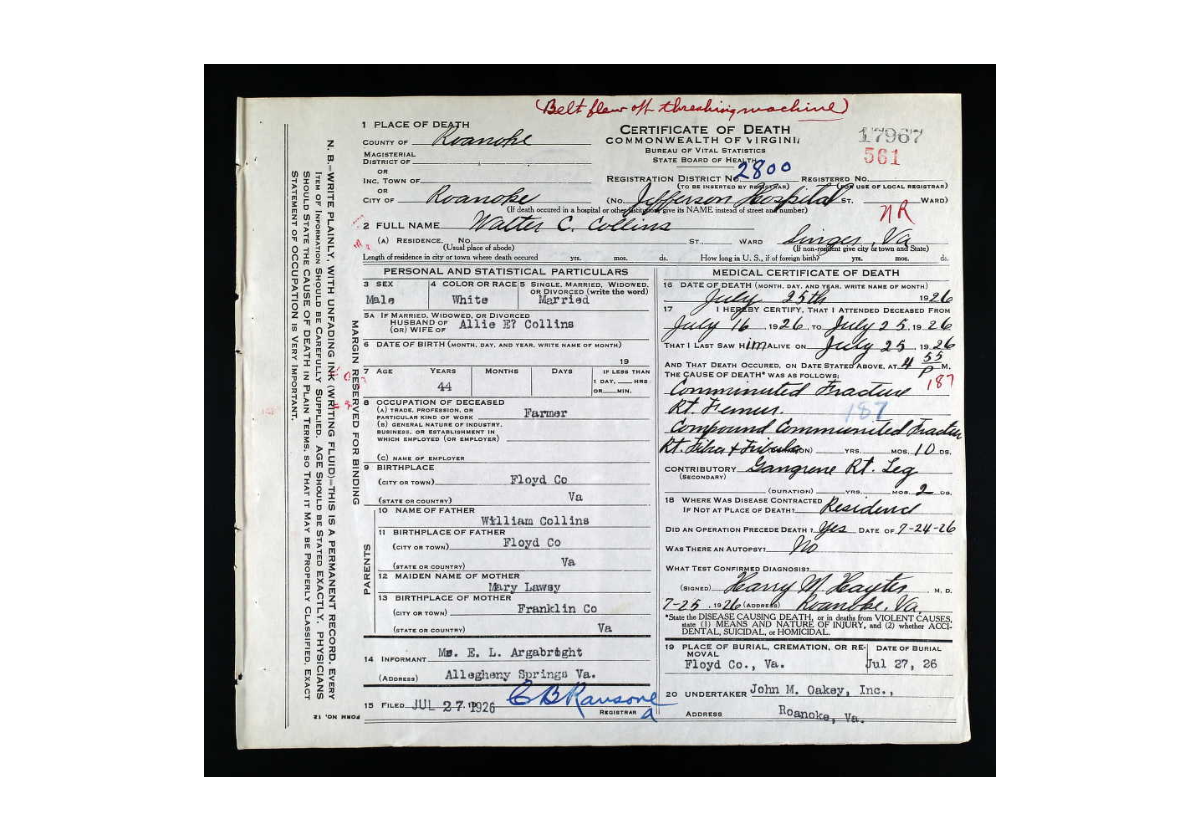 (Belt flew off threshing machine)
1 PLACE OF DEATH
COUNTY OF Roanoke
MAGISTERIAL
DISTRICT OF
OR
INC. TOWN OF
OR
CITY OF Roanoke
CERTIFICATE OF DEATH
COMMONWEALTH OF VIRGINIA
BUREAU OF VITAL STATISTICS
STATE BOARD OF HEALTH
17967
561
REGISTRATION DISTRICT NO. 2800 REGISTERED NO.
(TO BE INSERTED BY REGISTRAR) (FOR USE OF LOCAL REGISTRAR)
(No. Jefferson Hospital ST. WARD)
(If death occured in a hospital or other institution give its NAME instead of street and number)
NR
2 FULL NAME Walter C. Collins
(A) RESIDENCE. No. ST. WARD Singer, Va
(Usual place of abode) (If non-resident give city or town and State)
Length of residence in city or town where death occured yrs. mos. ds. How long in U. S., if of foreign birth? yrs. mos. ds.
PERSONAL AND STATISTICAL PARTICULARS
3 SEX 4 COLOR OR RACE 5 SINGLE, MARRIED, WIDOWED,
OR DIVORCED (write the word)
Male White Married
5A IF MARRIED, WIDOWED, OR DIVORCED
HUSBAND OF Allie E? Collins
(OR) WIFE OF
6 DATE OF BIRTH (MONTH, DAY, AND YEAR, WRITE NAME OF MONTH)
19
7 AGE YEARS MONTHS DAYS IF LESS THAN
1 DAY, HRS
OR MIN.
44
8 OCCUPATION OF DECEASED
(A) TRADE, PROFESSION, OR
PARTICULAR KIND OF WORK Farmer
(B) GENERAL NATURE OF INDUSTRY,
BUSINESS, OR ESTABLISHMENT IN
WHICH EMPLOYED (OR EMPLOYER)
(C) NAME OF EMPLOYER
9 BIRTHPLACE
(CITY OR TOWN) Floyd Co
(STATE OR COUNTRY) Va
PARENTS
10 NAME OF FATHER
William Collins
11 BIRTHPLACE OF FATHER
(CITY OR TOWN) Floyd Co
(STATE OR COUNTRY) Va
12 MAIDEN NAME OF MOTHER
Mary Lawsy
13 BIRTHPLACE OF MOTHER
(CITY OR TOWN) Franklin Co
(STATE OR COUNTRY) Va
14 INFORMANT E. L. Argabright
(ADDRESS) Allegheny Springs Va.
15 FILED JUL 27 1926 C B Ransone
REGISTRAR
MEDICAL CERTIFICATE OF DEATH
16 DATE OF DEATH (MONTH, DAY, AND YEAR, WRITE NAME OF MONTH)
July 25th 1926
17 I HEREBY CERTIFY, THAT I ATTENDED DECEASED FROM
July 16, 1926, TO July 25, 1926
THAT I LAST SAW Him ALIVE ON July 25, 1926
AND THAT DEATH OCCURED, ON DATE STATED ABOVE, AT 4 55 P M.
THE CAUSE OF DEATH* WAS AS FOLLOWS: 187
Comminuted Fracture
Rt. Femur. 187
Compound Communited Fracture
Rt. Tibia & Fibula (DURATION) YRS. MOS. 10 DS.
CONTRIBUTORY Gangrene Rt. Leg
(SECONDARY)
(DURATION) YRS. MOS. 2 DS.
18 WHERE WAS DISEASE CONTRACTED
IF NOT AT PLACE OF DEATH? Residence
DID AN OPERATION PRECEDE DEATH? Yes DATE OF 7-24-26
WAS THERE AN AUTOPSY? No
WHAT TEST CONFIRMED DIAGNOSIS?
(SIGNED) Harry M. Hayter M. D.
7-25, 1926 (ADDRESS) Roanoke, Va,
*State the DISEASE CAUSING DEATH, or in deaths from VIOLENT CAUSES,
state (1) MEANS AND NATURE OF INJURY, and (2) whether ACCI-
DENTAL, SUICIDAL, or HOMICIDAL.
19 PLACE OF BURIAL, CREMATION, OR RE- DATE OF BURIAL
MOVAL
Floyd Co., Va. Jul 27, 26
20 UNDERTAKER John M. Oakey, Inc.,
ADDRESS Roanoke, Va.
MARGIN RESERVED FOR BINDING
N. B.—WRITE PLAINLY, WITH UNFADING INK (WRITING FLUID)—THIS IS A PERMANENT RECORD. EVERY
ITEM OF INFORMATION SHOULD BE CAREFULLY SUPPLIED. AGE SHOULD BE STATED EXACTLY. PHYSICIANS
SHOULD STATE THE CAUSE OF DEATH IN PLAIN TERMS, SO THAT IT MAY BE PROPERLY CLASSIFIED. EXACT
STATEMENT OF OCCUPATION IS VERY IMPORTANT.
FORM NO. 12